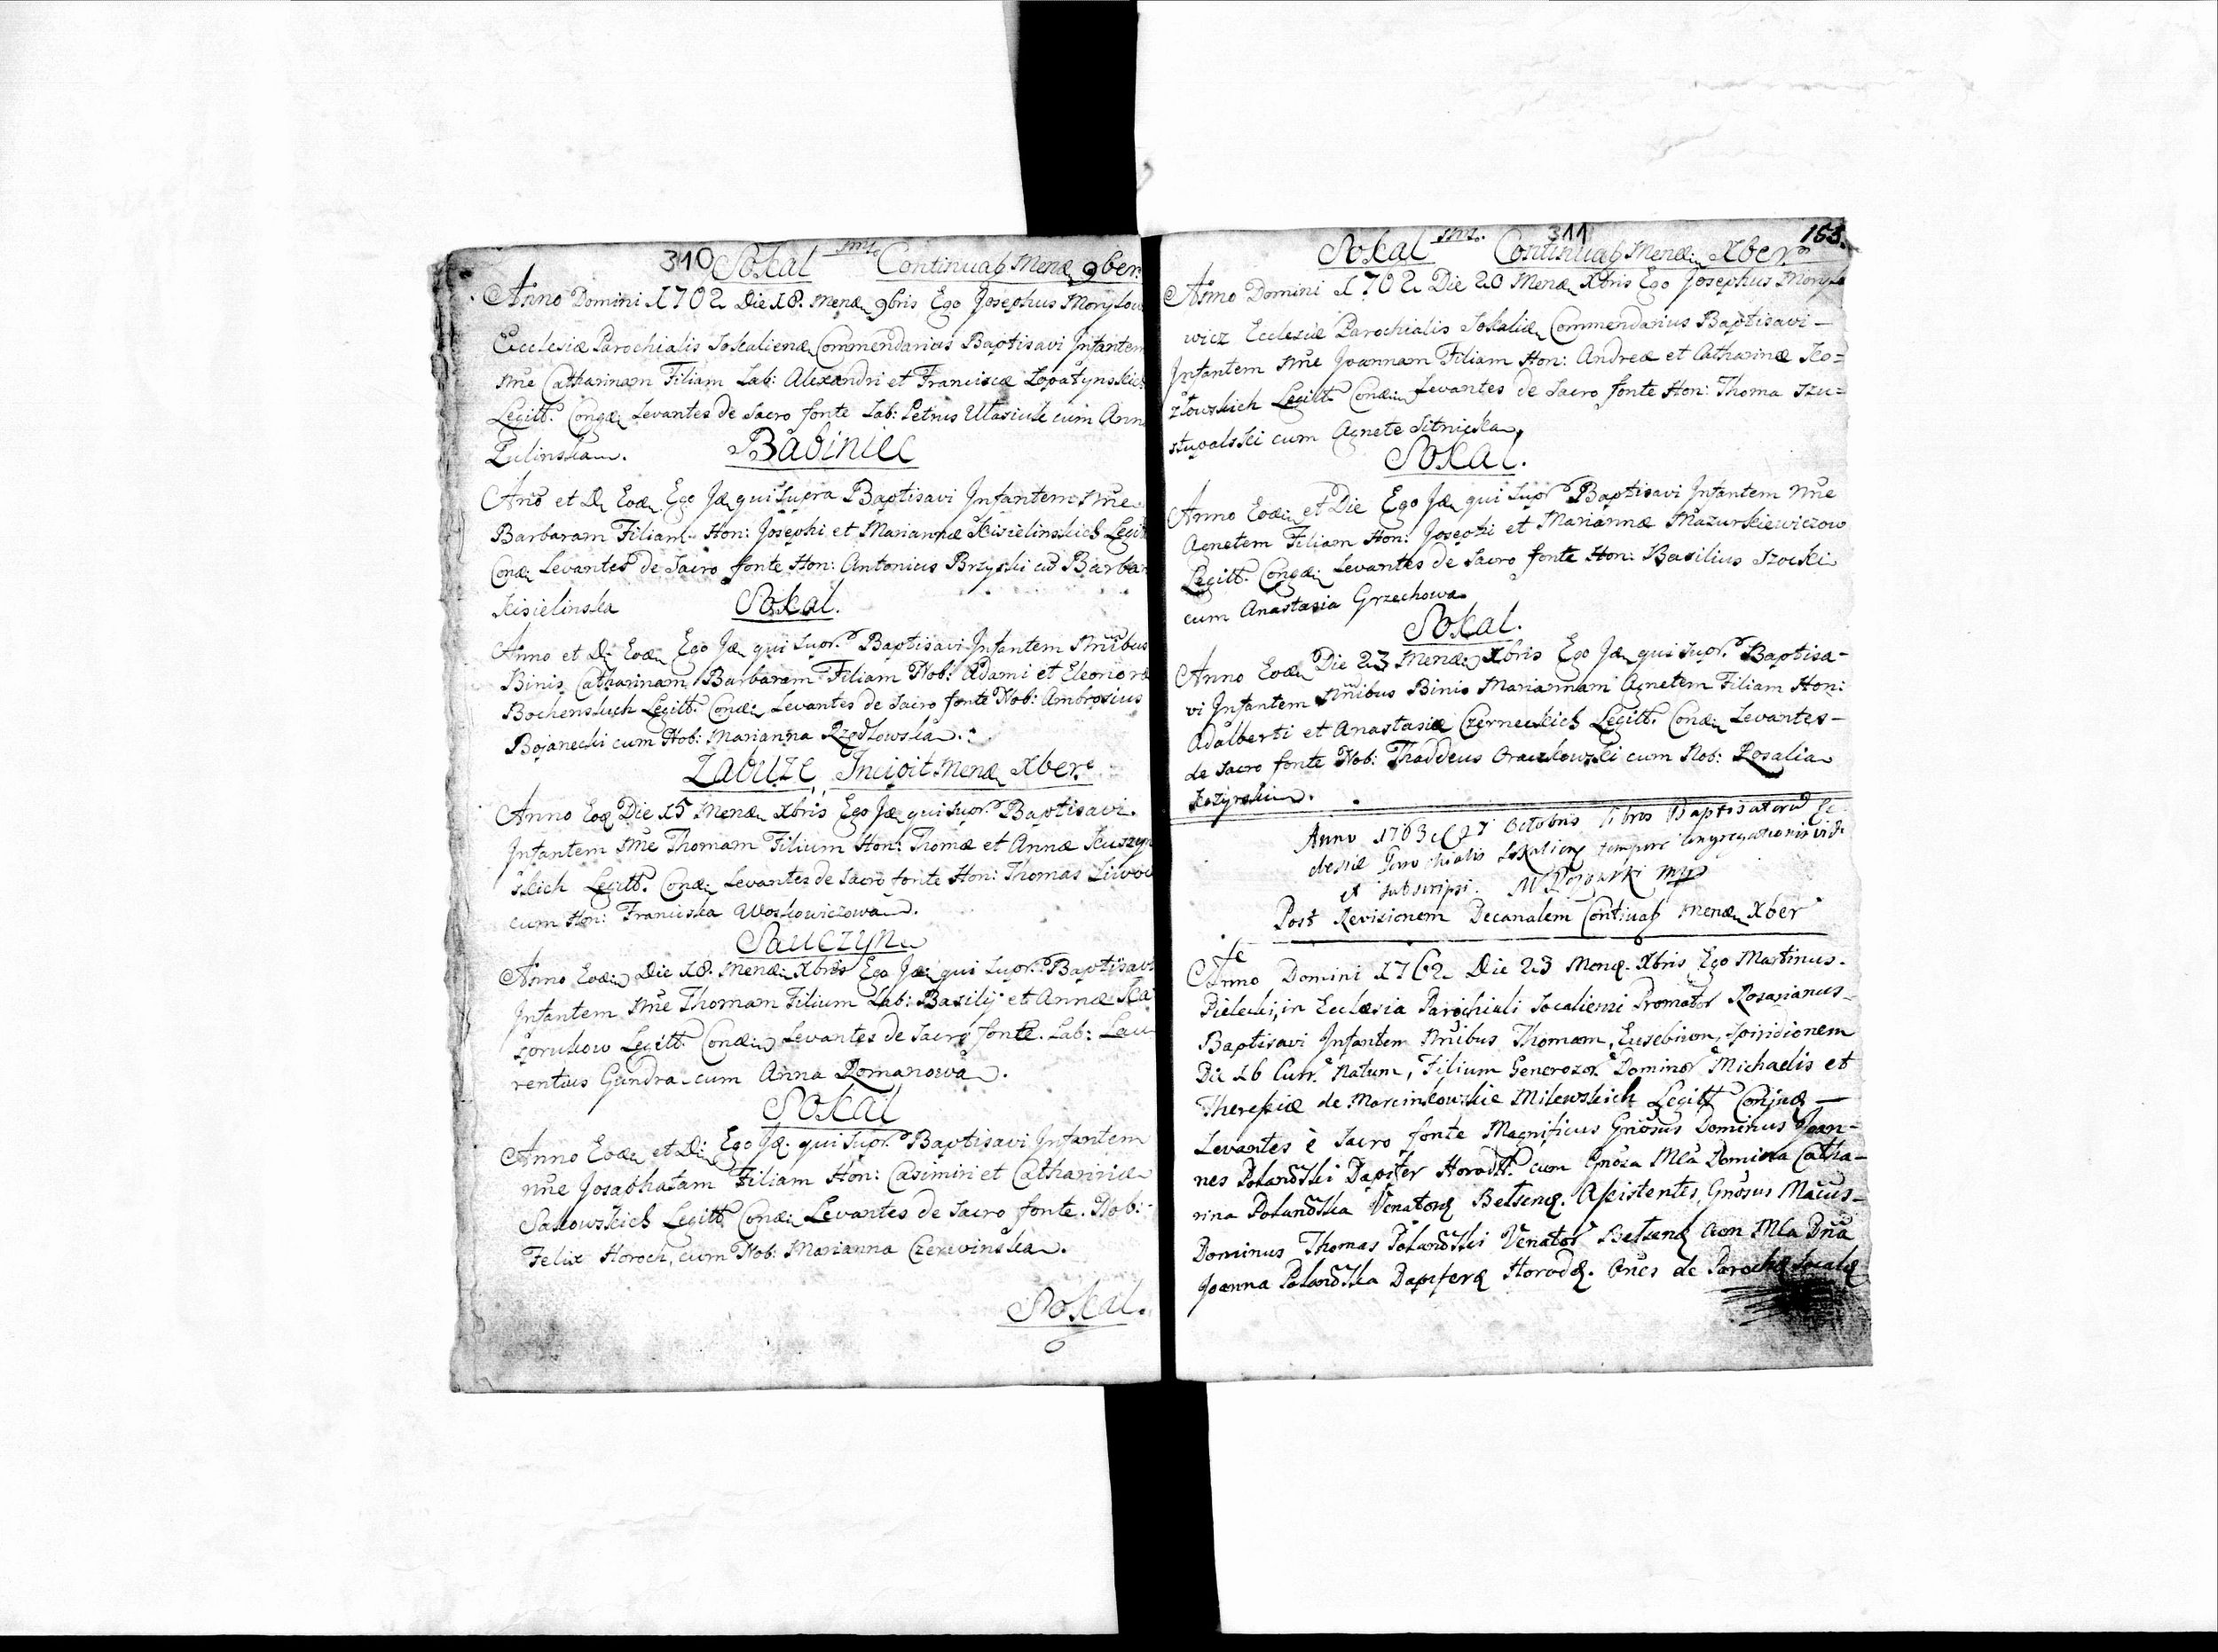 310 Sokal Continuat Mens 9ber
Anno Domini 1762 Die 18. Mens 9bris Ego Josephus Morylow
Ecclesiæ Parochialis Sokaliens Commendarius Baptisavi Infantem
nne Catharinam Filiam Lab: Alexandri et Franciscæ Lopatynskich
Legitt. Conjg: Levantes de Sacro fonte Lab: Petrus Ulasiuk cum Anna
Zulinska.
Babiniec
Ano et D. Eod. Ego Id. qui Supra Baptisavi Infantem nne
Barbaram Filiam Hon: Josephi et Mariannæ Kisielinskich Legitt
Conj: Levantes de Sacro fonte Hon: Antonius Brzyski cu Barbar
Kisielinska
Sokal.
Anno et D: Eod. Ego Id. qui Supr. Baptisavi Infantem Nnibus
Binis Catharinam, Barbaram Filiam Nob: Adami et Eleonoræ
Bochenskich Legitt. Conj: Levantes de Sacro fonte Nob: Ambrosius
Bojanecki cum Nob: Marianna Rzodlowska.
Zabuze, Incipit Mens Xber
Anno Eod Die 15 Mens Xbris Ego Id. qui Supr. Baptisavi
Infantem nne Thomam Filium Hon: Thomæ et Annæ Kuszyn
skich Legitt. Conj: Levantes de Sacro fonte Hon: Thomas
cum Hon: Franciska Woskowiczowa.
Sauczyn
Anno Eod: Die 18. Mens: Xbris Ego Id: qui Supr. Baptisavi
Infantem nne Thomam Filium Lab: Basilij et Annæ Ka
Legitt. Conj: Levantes de Sacro fonte. Lab: Lau
rentius Gundra cum Anna Romanowa.
Sokal
Anno Eod. et D: Ego Id. qui Supr. Baptisavi Infantem
nne Josaphatam Filiam Hon: Casimiri et Catharinæ
Sakowskich Legitt. Conj: Levantes de Sacro fonte. Nob:
Felix Horoch, cum Nob: Marianna Czerevinska.
Sokal.
Sokal 311 Continuat Mens: Xber 153.
Anno Domini 1762 Die 20 Mens Xbris Ego Josephus Morylo
wicz Ecclesiæ Parochialis Sokaliæ Commendarius Baptisavi -
Infantem nne Joannam Filiam Hon: Andreæ et Catharinæ Ko=
zlowskich Legitt. Conj: Levantes de Sacro fonte Hon: Thoma Szu=
stwalski cum Agnete Sitnicka.
Sokal.
Anno Eod: et Die Ego Id. qui Supr. Baptisavi Infantem nne
Agnetem Filiam Hon: Josephi et Mariannæ Mazurkiewiczow
Legitt. Conjg: Levantes de Sacro fonte Hon: Basilius Szocki
cum Anastasia Grzechowa
Sokal.
Anno Eod. Die 23 Mens: Xbris Ego Id. qui Supr. Baptisa-
vi Infantem Nnibus Binis Mariannam Agnetem Filiam Hon:
Adalberti et Anastasiæ Czerneckich Legitt. Conj: Levantes -
de Sacro fonte Nob: Thaddeus Oraczkowski cum Nob: Rosalia
Kozyrska.
Anno 1763 d 27 Octobris libros Baptisatoru Ec
clesiæ Parochialis Sokaliens tempore Congregationis vidi
et subscripsi. mpp
Post Revisionem Decanalem Continuat Mens Xber
Anno Domini 1762 Die 23 Mens. Xbris Ego Martinus
Pielecki, in Ecclesia Parochiali Socaliensi Promotor Rosarianus
Baptisavi Infantem Nnibus Thomam, Eusebium, Spiridionem
Die 16 Curr. Natum, Filium Generosor. Dominor Michaelis et
Theresiæ de Marcinkowskie Milewskich Legitt Conjug -
Levantes è Sacro fonte Magnificus Gnosus Dominus Joan-
nes Polanowski Dapifer Horodtt. cum Gnosa Mca Domina Catha-
rina Polanowska Venatoris Belsens. Assistentes, Gnosus Macus
Dominus Thomas Polanowski Venator Belsens cum Mca Dna
Joanna Polanowska Dapifera Horod. Ones de Parochia